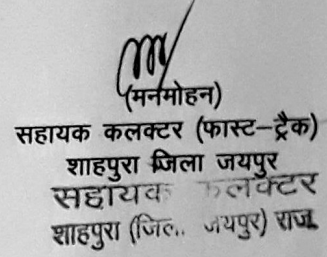 (मनमोहन)
सहायक कलक्टर (फास्ट–ट्रैक)
शाहपुरा जिला जयपुर
सहायक कलक्टर
शाहपुरा (जिल.. जयपुर) राज.